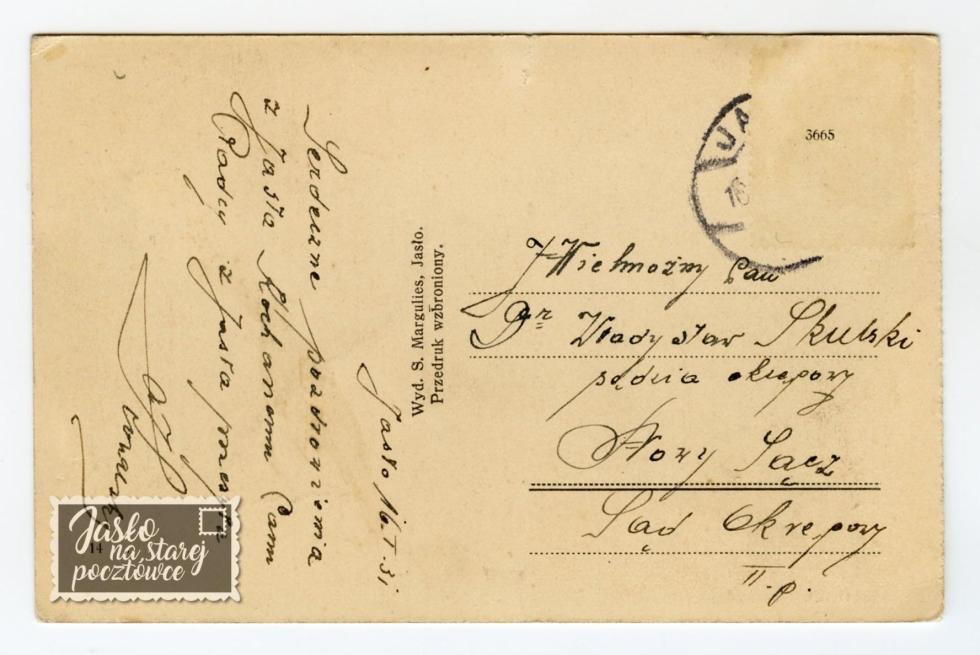 Serdeczne pozdrowienia
z Jasła Kochanemu Panu
Radcy z Jasła przesyła
Jasło 16.V.31
Wyd. S. Margulies, Jasło.
Przedruk wzbroniony.
JA
16
3665
JWielmożny Pan
Dr Władysław Skulski
sędzia okręgowy
Nowy Sącz
Sąd Okręgowy
II. p.
14
Jasło
na starej
pocztówce